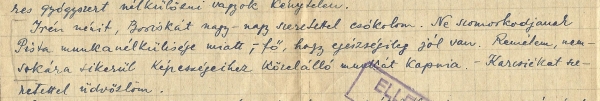 res gyógyszert nélkülözni vagyok kénytelen.
Irén nénit, Bözsikét nagy-nagy szeretettel csókolom. Ne szomorkodjanak
Pista munkanélkülisége miatt, - fő, hogy egészségileg jól van. Remélem, nem-
sokára sikerül képességeihez közelálló munkát kapnia. - Karcsiékat sze-
retettel üdvözlöm.
ELLE